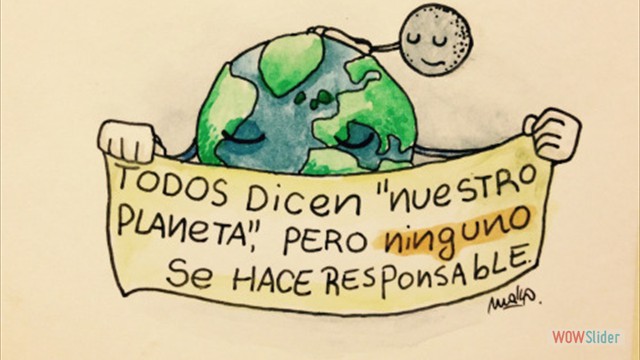 TODOS DICEN "NUESTRO
PLANETA", PERO NINGUNO
SE HACE RESPONSABLE.
WOWSlider